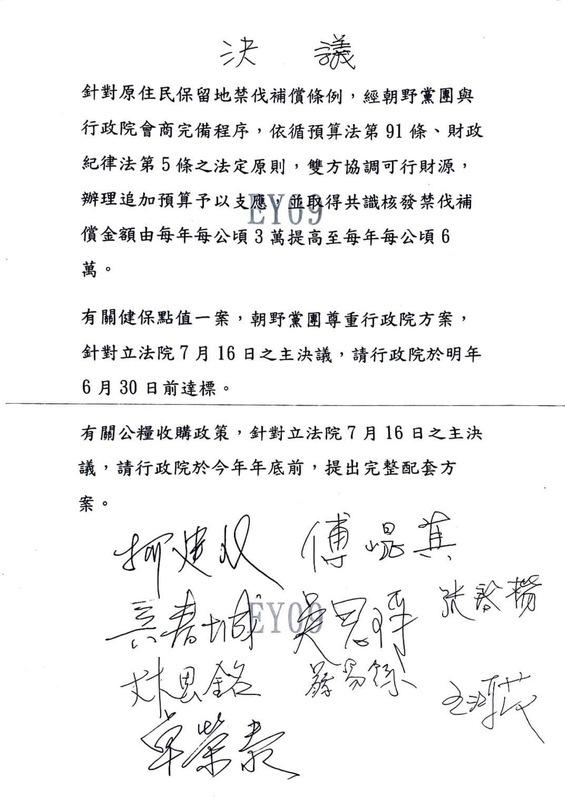 決 議
針對原住民保留地禁伐補償條例，經朝野黨團與
行政院會商完備程序，依循預算法第91條、財政
紀律法第5條之法定原則，雙方協調可行財源，
辦理追加預算予以支應，並取得共識核發禁伐補
EY09
償金額由每年每公頃3萬提高至每年每公頃6
萬。
有關健保點值一案，朝野黨團尊重行政院方案，
針對立法院7月16日之主決議，請行政院於明年
6月30日前達標。
有關公糧收購政策，針對立法院7月16日之主決
議，請行政院於今年年底前，提出完整配套方
案。
柯建 傅崐萁
張啓楷
吳思瑤
EY09
林思銘 蔡易餘
卓榮泰